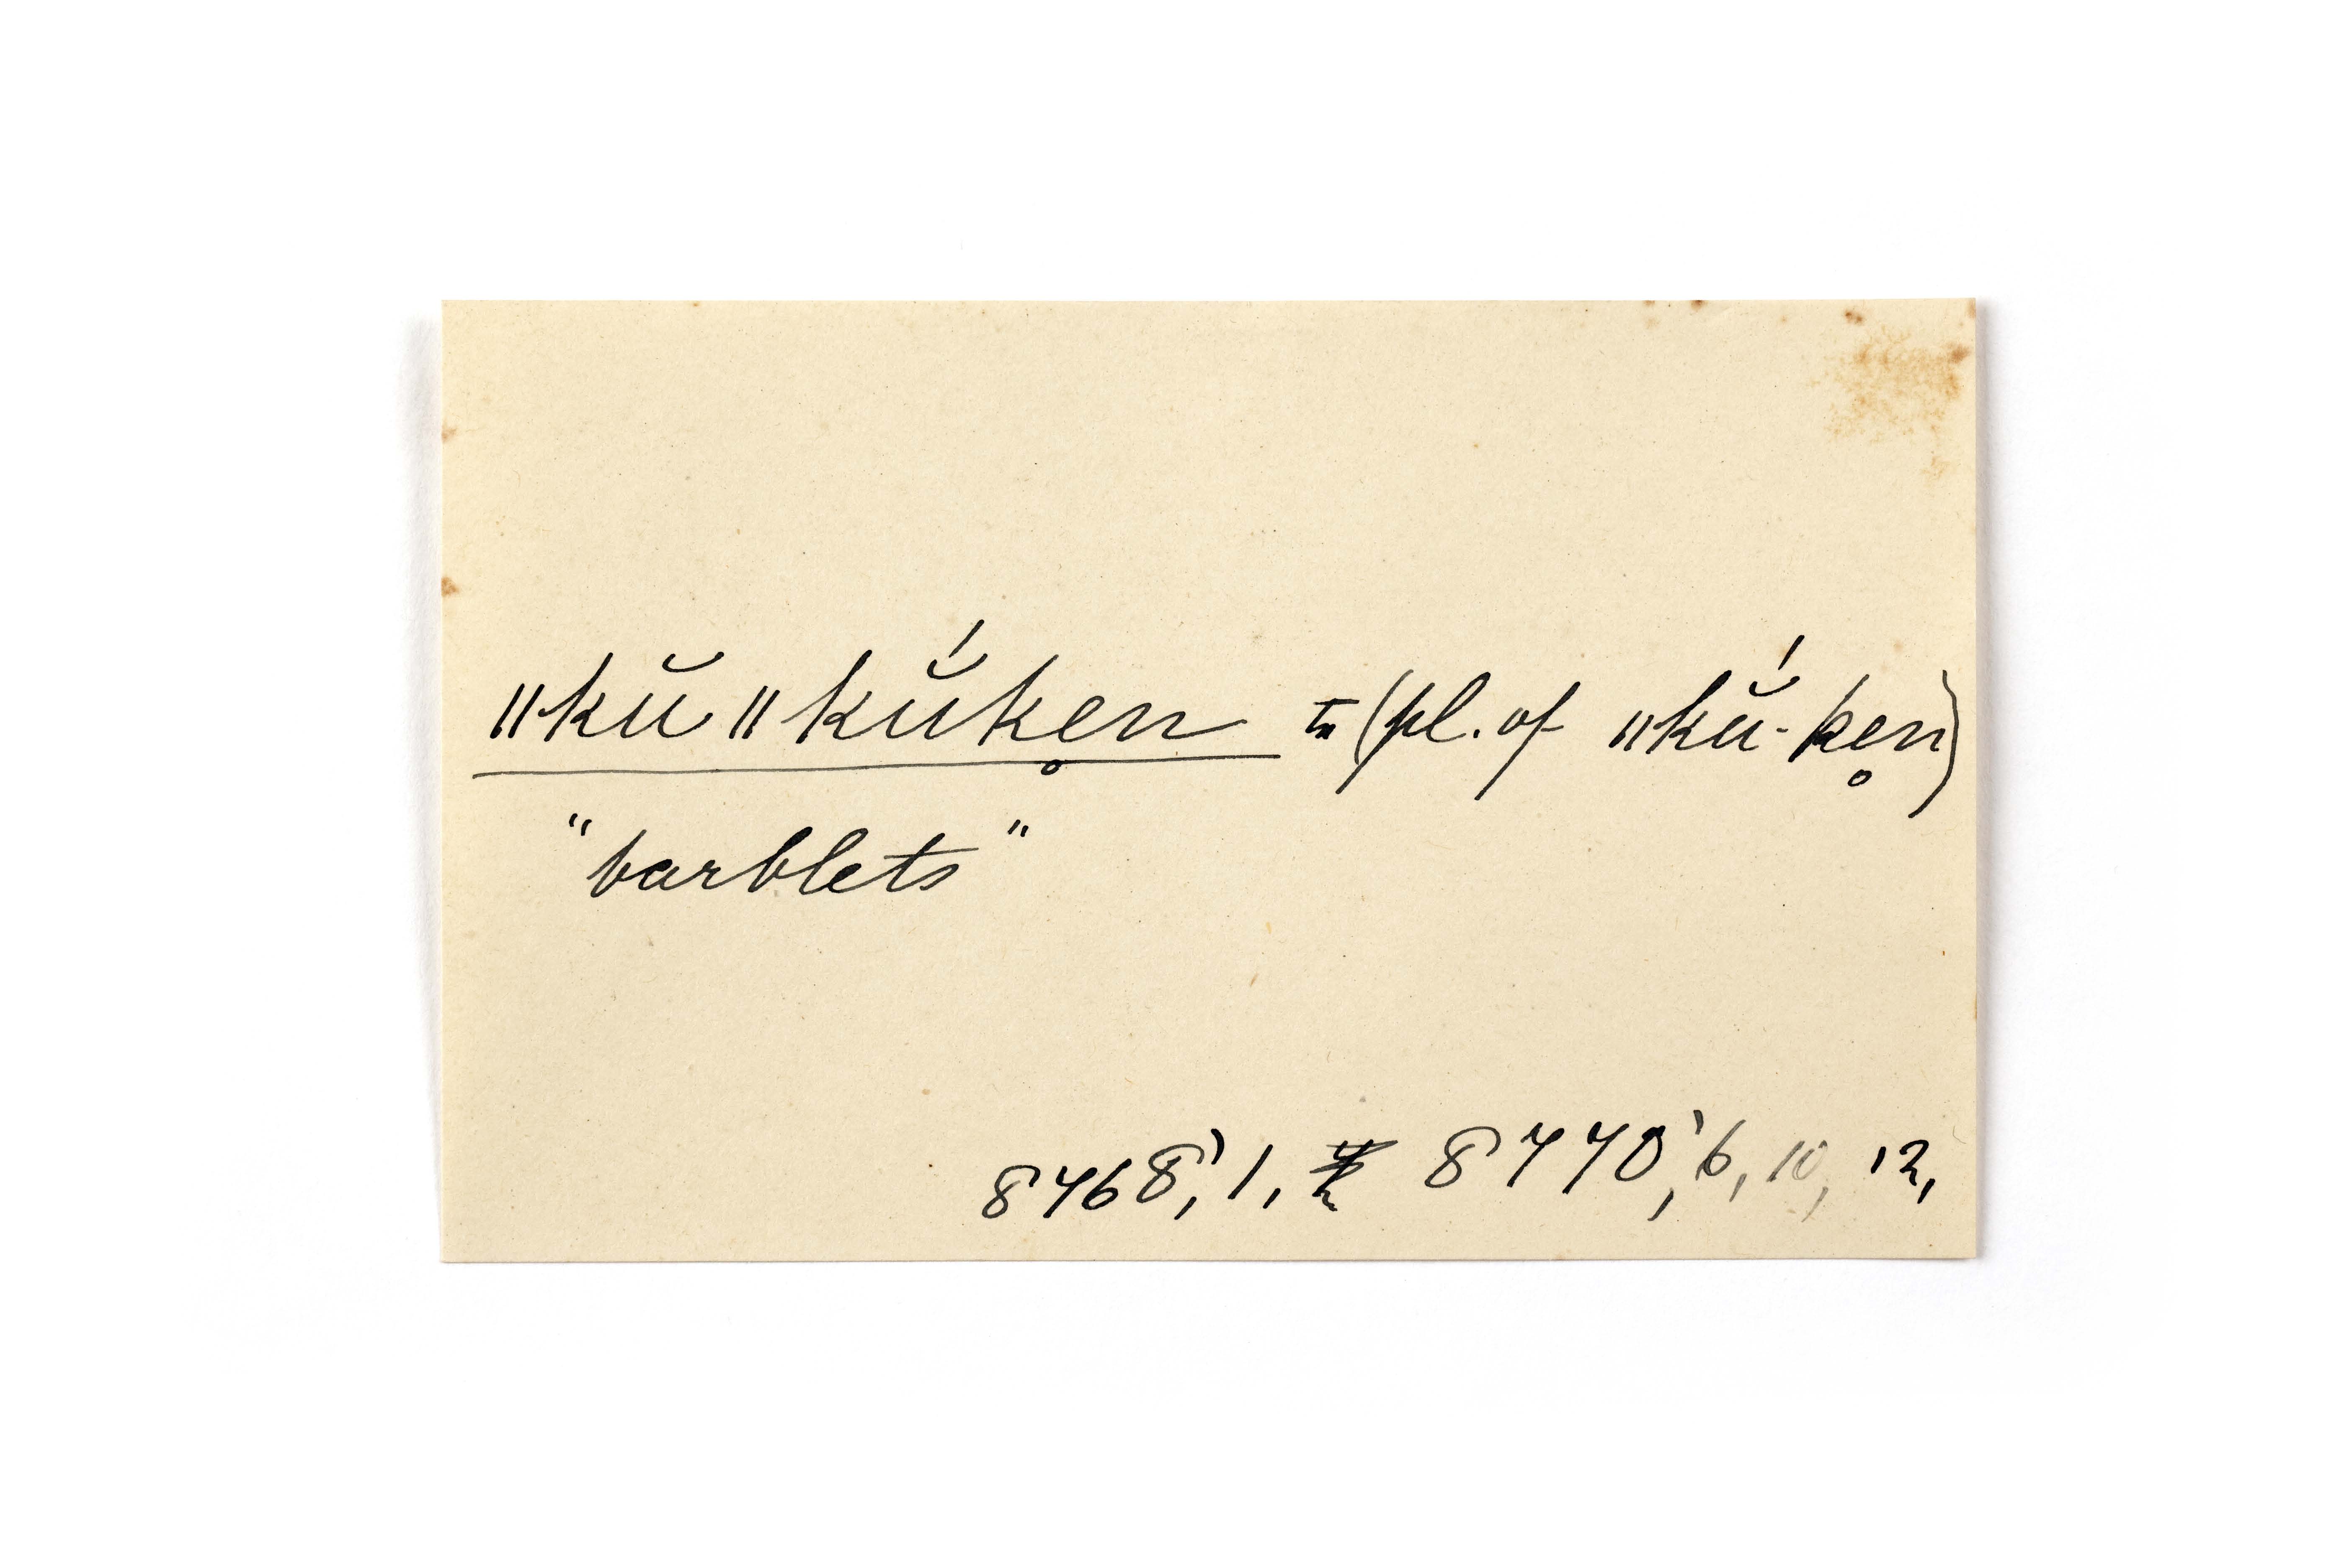 ‖kŭ‖kŭ́ke̥n (pl. of ‖kŭ́-ke̥n)
"barblets"
8468,' 1, 8470,' 6, 10, 12,